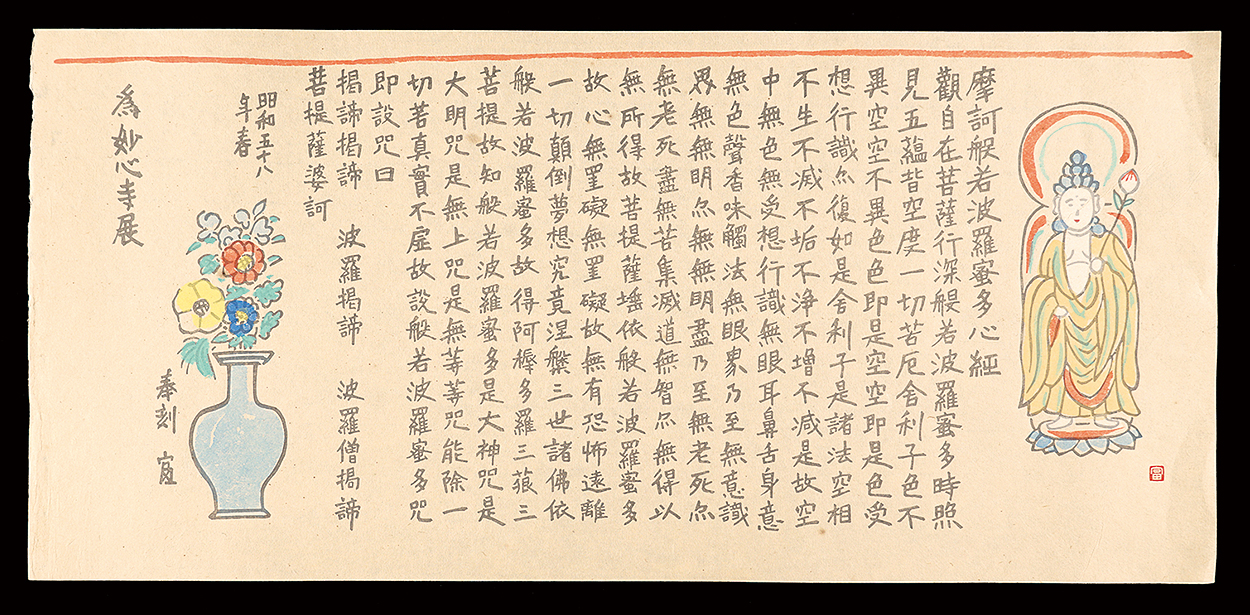 摩訶般若波羅蜜多心経
觀自在菩薩行深般若波羅蜜多時照
見五蘊皆空度一切苦厄舎利子色不
異空空不異色色即是空空即是色受
想行識尒復如是舎利子是諸法空相
不生不滅不垢不浄不增不減是故空
中無色無受想行識無眼耳鼻舌身意
無色聲香味觸法無眼界乃至無意識
界無無明尒無無明盡乃至無老死尒
無老死盡無苦集滅道無智尒無得以
無所得故菩提薩埵依般若波羅蜜多
故心無罣礙無罣礙故無有恐怖遠離
一切顛倒夢想究竟涅槃三世諸佛依
般若波羅蜜多故得阿耨多羅三藐三
菩提故知般若波羅蜜多是大神咒是
大明咒是無上咒是無等等咒能除一
切苦真實不虛故説般若波羅蜜多咒
即説咒曰
揭諦揭諦 波羅揭諦 波羅僧揭諦
菩提薩婆訶
昭和五十八
年春
奉刻 富
為妙心寺展
富